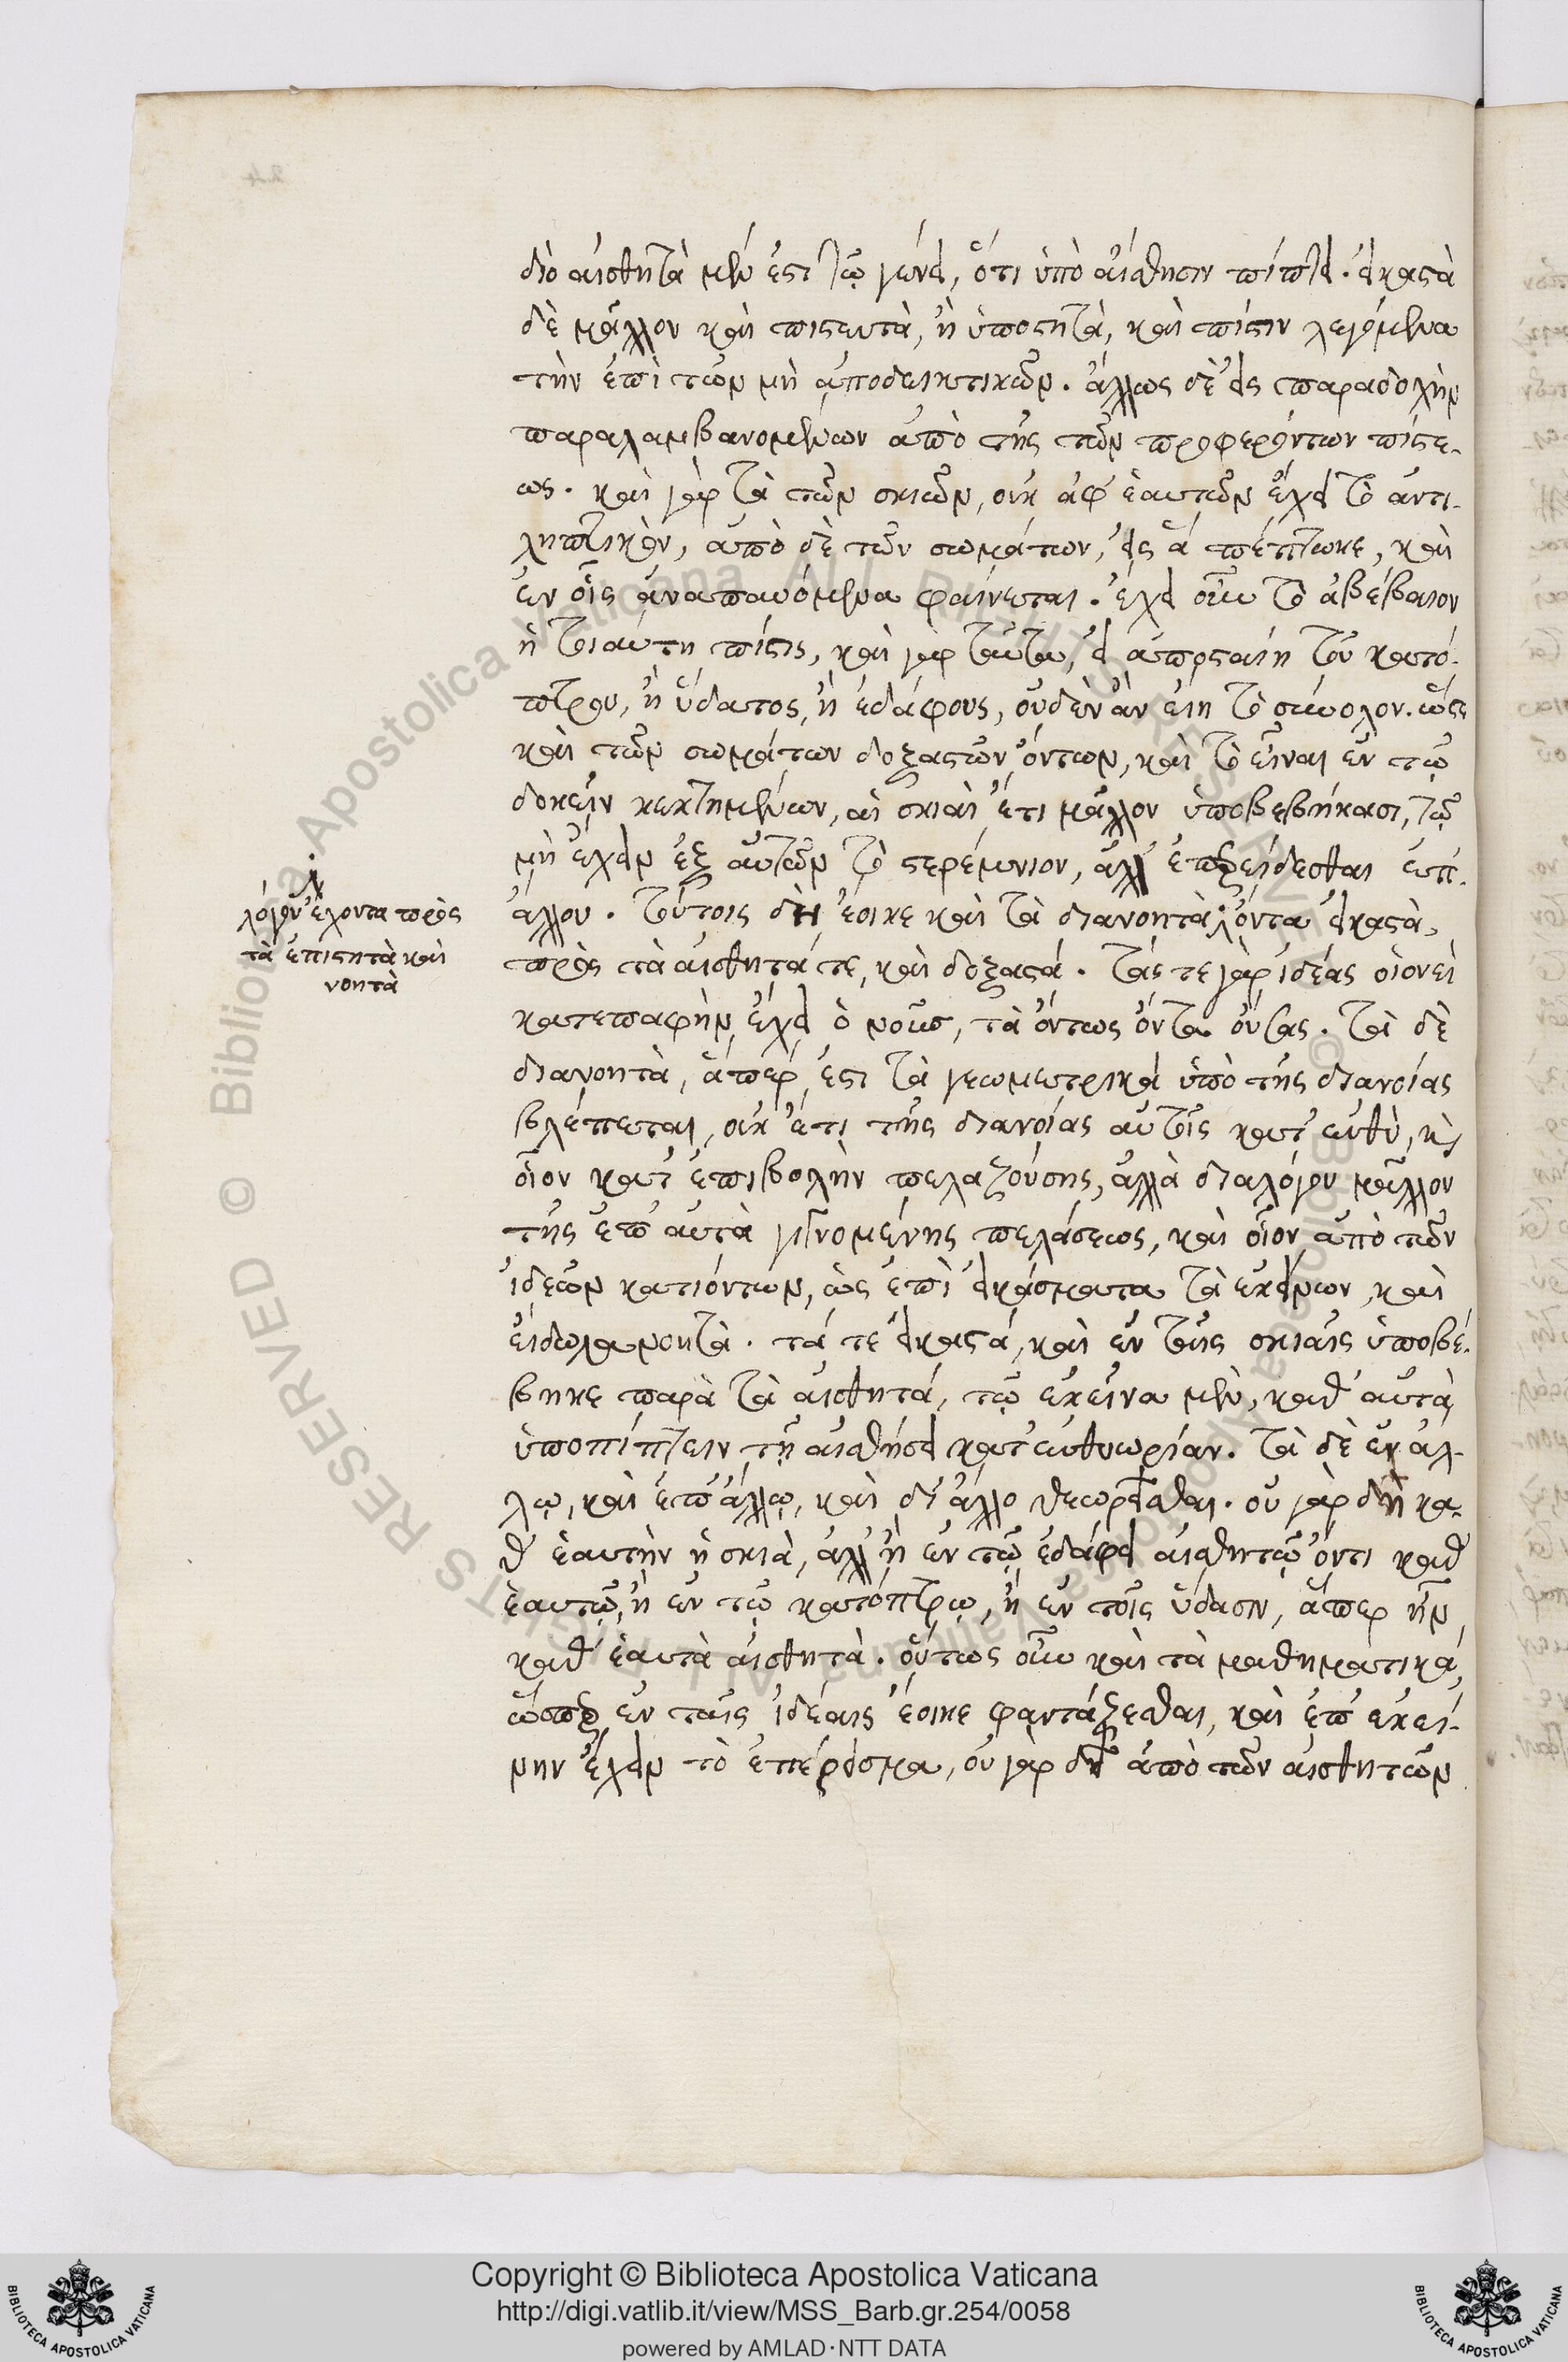 διὸ αἰσθητὰ μέν ἐστι τῷ γένει, ὅτι ὑπὸ αἴσθησιν πίπτει. εἰκαστὰ
δὲ μᾶλλον καὶ πιστευτὰ, ἢ ὑποστητὰ, καὶ πίστιν λεγόμενα
τὴν ἐπὶ τῶν μὴ ἀποδεικτικῶν. ἄλλως δὲ εἰς παραδολὴν
παραλαμβανομένων ἀπὸ τῆς τῶν προφερόντων πίστε-
ως. καὶ γὰρ τὰ τῶν σκιῶν, οὐκ ἀφ' ἑαυτῶν ἔχει τὸ ἀντι-
ληπτικὸν, ἀπὸ δὲ τῶν σωμάτων, εἰς ἃ πέπτωκε, καὶ
ἐν οἷς ἀναπαυόμενα φαίνεται. ἔχει οὖν τὸ ἀβέβαιον
ἡ τοιαύτη πίστις, καὶ γὰρ ταῦτα, εἰ ἀποσταίη τοῦ κατό-
πτρου, ἢ ὕδατος, ἢ ἐδάφους, οὐδὲν ἂν εἴη τὸ σύνολον. ὥστε
καὶ τῶν σωμάτων δοξαστῶν ὄντων, καὶ τὸ εἶναι ἐν τῷ
δοκεῖν κεκτημένων, αἱ σκιαὶ ἔτι μᾶλλον ὑποβεβήκασι, τῷ
μὴ ἔχειν ἐξ αὐτῶν τὸ στερέμνιον, ἀλλ' ἐπερείδεσθαι ἐπ'
ἄλλου. τούτοις δὴ ἔοικε καὶ τὰ διανοητὰ ὄντα εἰκαστὰ,
λόγον ἔχοντα πρὸς
τὰ ἐπιστητὰ καὶ
νοητὰ
πρὸς τὰ αἰσθητά τε, καὶ δοξαστά. τάς τε γὰρ ἰδέας οἱονεὶ
κατεπαφὴν ἔχει ὁ νοῦς, τὰ ὄντως ὄντα οὔσας. τὰ δὲ
διανοητὰ, ἅπερ ἐστι τὰ γεωμετρικὰ ὑπὸ τῆς διανοίας
βλέπεται, οὐκ ἔτι τῆς διανοίας αὐτοῖς κατ' εὐθὺ, καὶ
οἷον κατ' ἐπιβολὴν πελαζούσης, ἀλλὰ διαλόγου μᾶλλον
τῆς ἐπ' αὐτὰ γινομένης πελάσεως, καὶ οἷον ἀπὸ τῶν
ἰδεῶν κατιόντων, ὡς ἐπὶ εἰκάσματα τὰ ἐκείνων, καὶ
εἴδωλα νοητὰ. τά τε εἰκαστά, καὶ ἐν ταῖς σκιαῖς ὑποβέ-
βηκε παρὰ τὰ αἰσθητά, τῷ ἐκεῖνα μὲν, καθ' αὑτὰ,
ὑποπίπτειν τῇ αἰσθήσει κατ' εὐθυωρίαν. τὰ δὲ ἐν ἄλ-
λῳ, καὶ ἐπ' ἄλλῳ, καὶ δι' ἄλλο θεωρεῖσθαι. οὐ γὰρ δὴ κα-
θ' ἑαυτὴν ἡ σκιὰ, ἀλλ' ἢ ἐν τῷ ἐδάφει αἰσθητῷ ὄντι καθ'
ἑαυτῷ, ἢ ἐν τῷ κατόπτρῳ, ἢ ἐν τοῖς ὕδασιν, ἅπερ ἦν
καθ' ἑαυτὰ αἰσθητὰ. οὕτως οὖν καὶ τὰ μαθηματικὰ,
ὥσπερ ἐν ταῖς ἰδέαις ἔοικε φαντάζεσθαι, καὶ ἐπ' ἐκεί-
νην ἔχειν τὸ ἐπέρεισμα, οὐ γὰρ δὴ ἀπὸ τῶν αἰσθητῶν
Copyright © Biblioteca Apostolica Vaticana
http://digi.vatlib.it/view/MSS_Barb.gr.254/0058
powered by AMLAD·NTT DATA